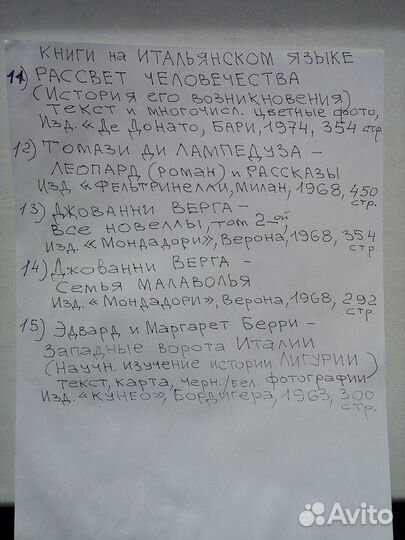 КНИГИ на ИТАЛЬЯНСКОМ ЯЗЫКЕ
11) РАССВЕТ ЧЕЛОВЕЧЕСТВА
(История его возникновения)
текст и многочисл. цветные фото,
Изд. «Де Донато, Бари, 1974, 354 стр
12) Томази ди Лампедуза –
Леопард (роман) и рассказы
Изд. «Фельтринелли, Милан, 1968, 450 стр.
13) Джованни Верга –
Все новеллы, том 2-ой,
Изд. «Мондадори», Верона, 1968, 354 стр.
14) Джованни Верга –
Семья Малаволья
Изд. «Мондадори», Верона, 1968, 292 стр.
15) Эдвард и Маргарет Берри –
Западные ворота Италии
(Научн. изучение истории Лигурии)
текст, карта, черн./бел. фотографии
Изд. «Кунео», Бордигера, 1963, 300 стр.
Avito